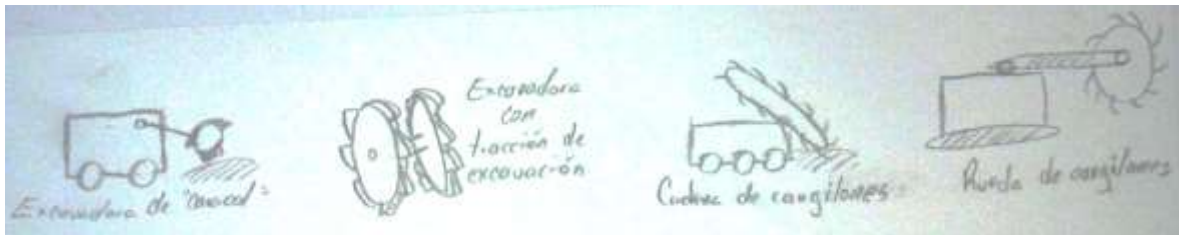 Excavadora de "caracol"
Excavadora
con
tracción de
excavación
Cadena de cangilones
Rueda de cangilones